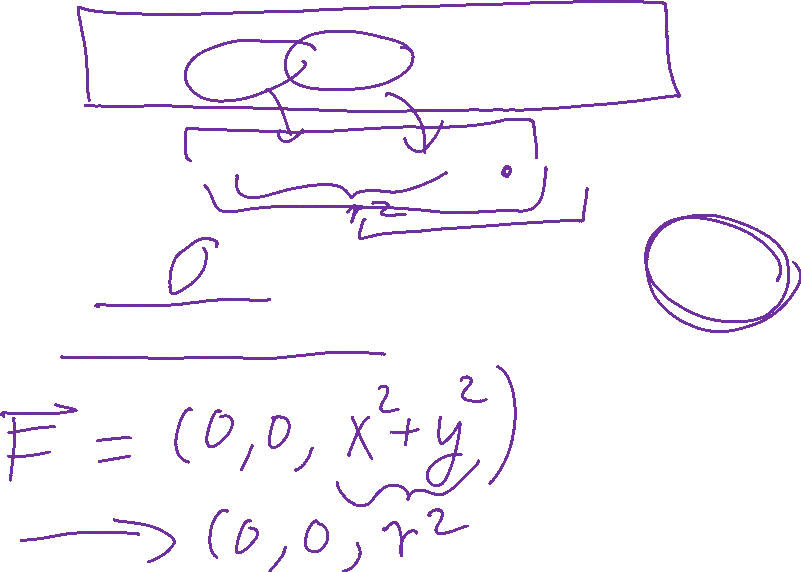 r²
0
F⃗ = (0, 0, x² + y²)
→ (0, 0, r²